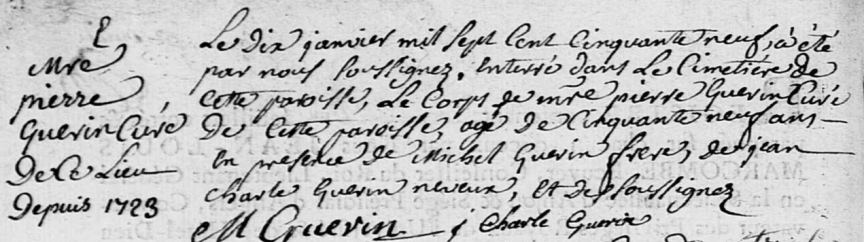 Mre
pierre
Guerin Curé
De ce Lieu
Depuis 1723
Le Dix janvier mil sept Cent Cinquante neuf, à été
par nous soussignez, Enterré dans Le Cimetière de
Cette paroisse, Le Corps de mre pierre Guerin Curé
De Cette paroisse, agé De Cinquante neuf ans
En presence de Michel Guerin frere, de jean
Charle Guerin neveux, Et des soussignez
M Guerin j Charle Guerin